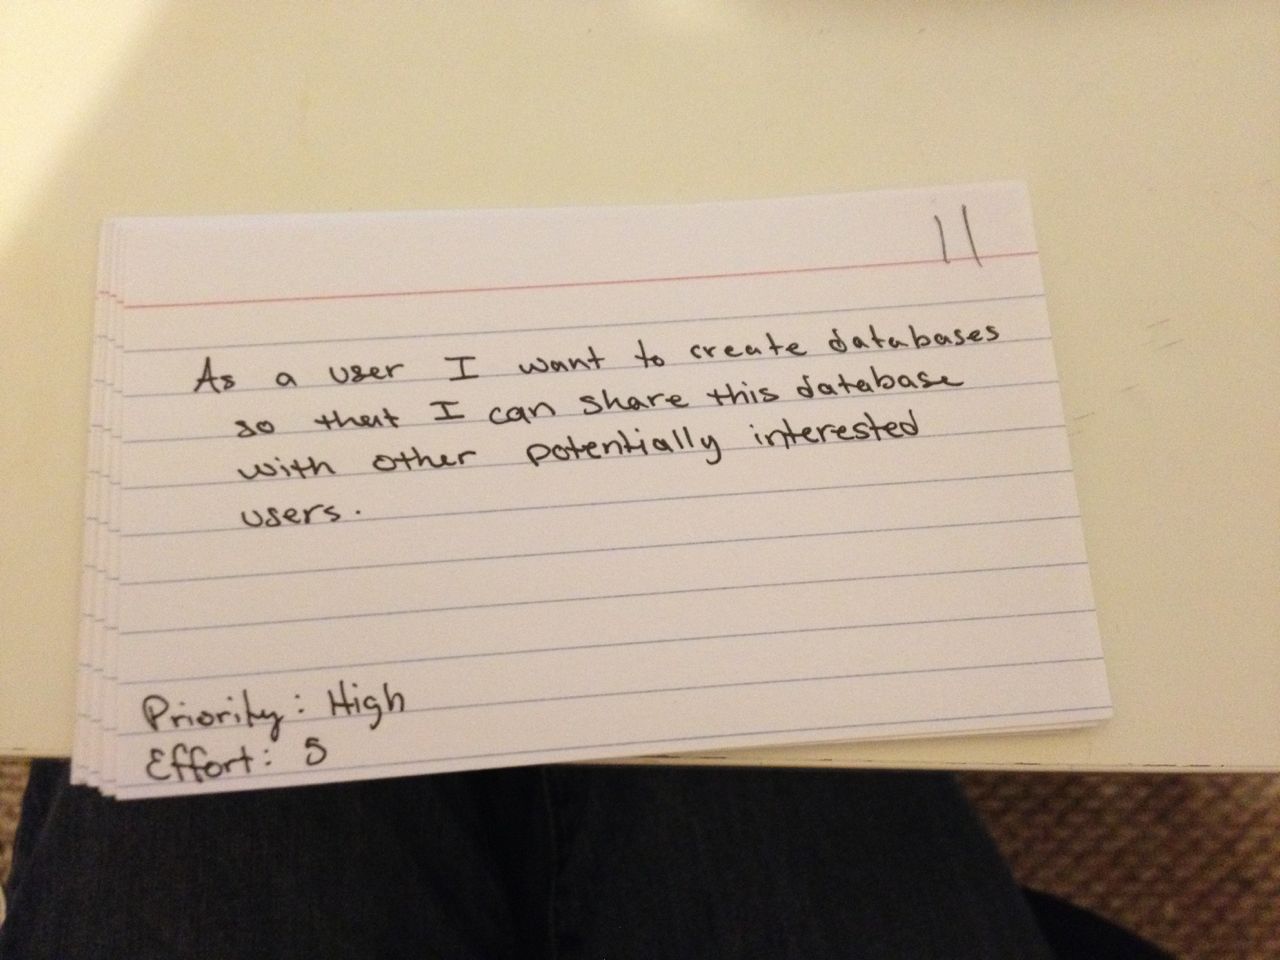 11
As a user I want to create databases
so that I can share this database
with other potentially interested
users.
Priority: High
Effort: 5